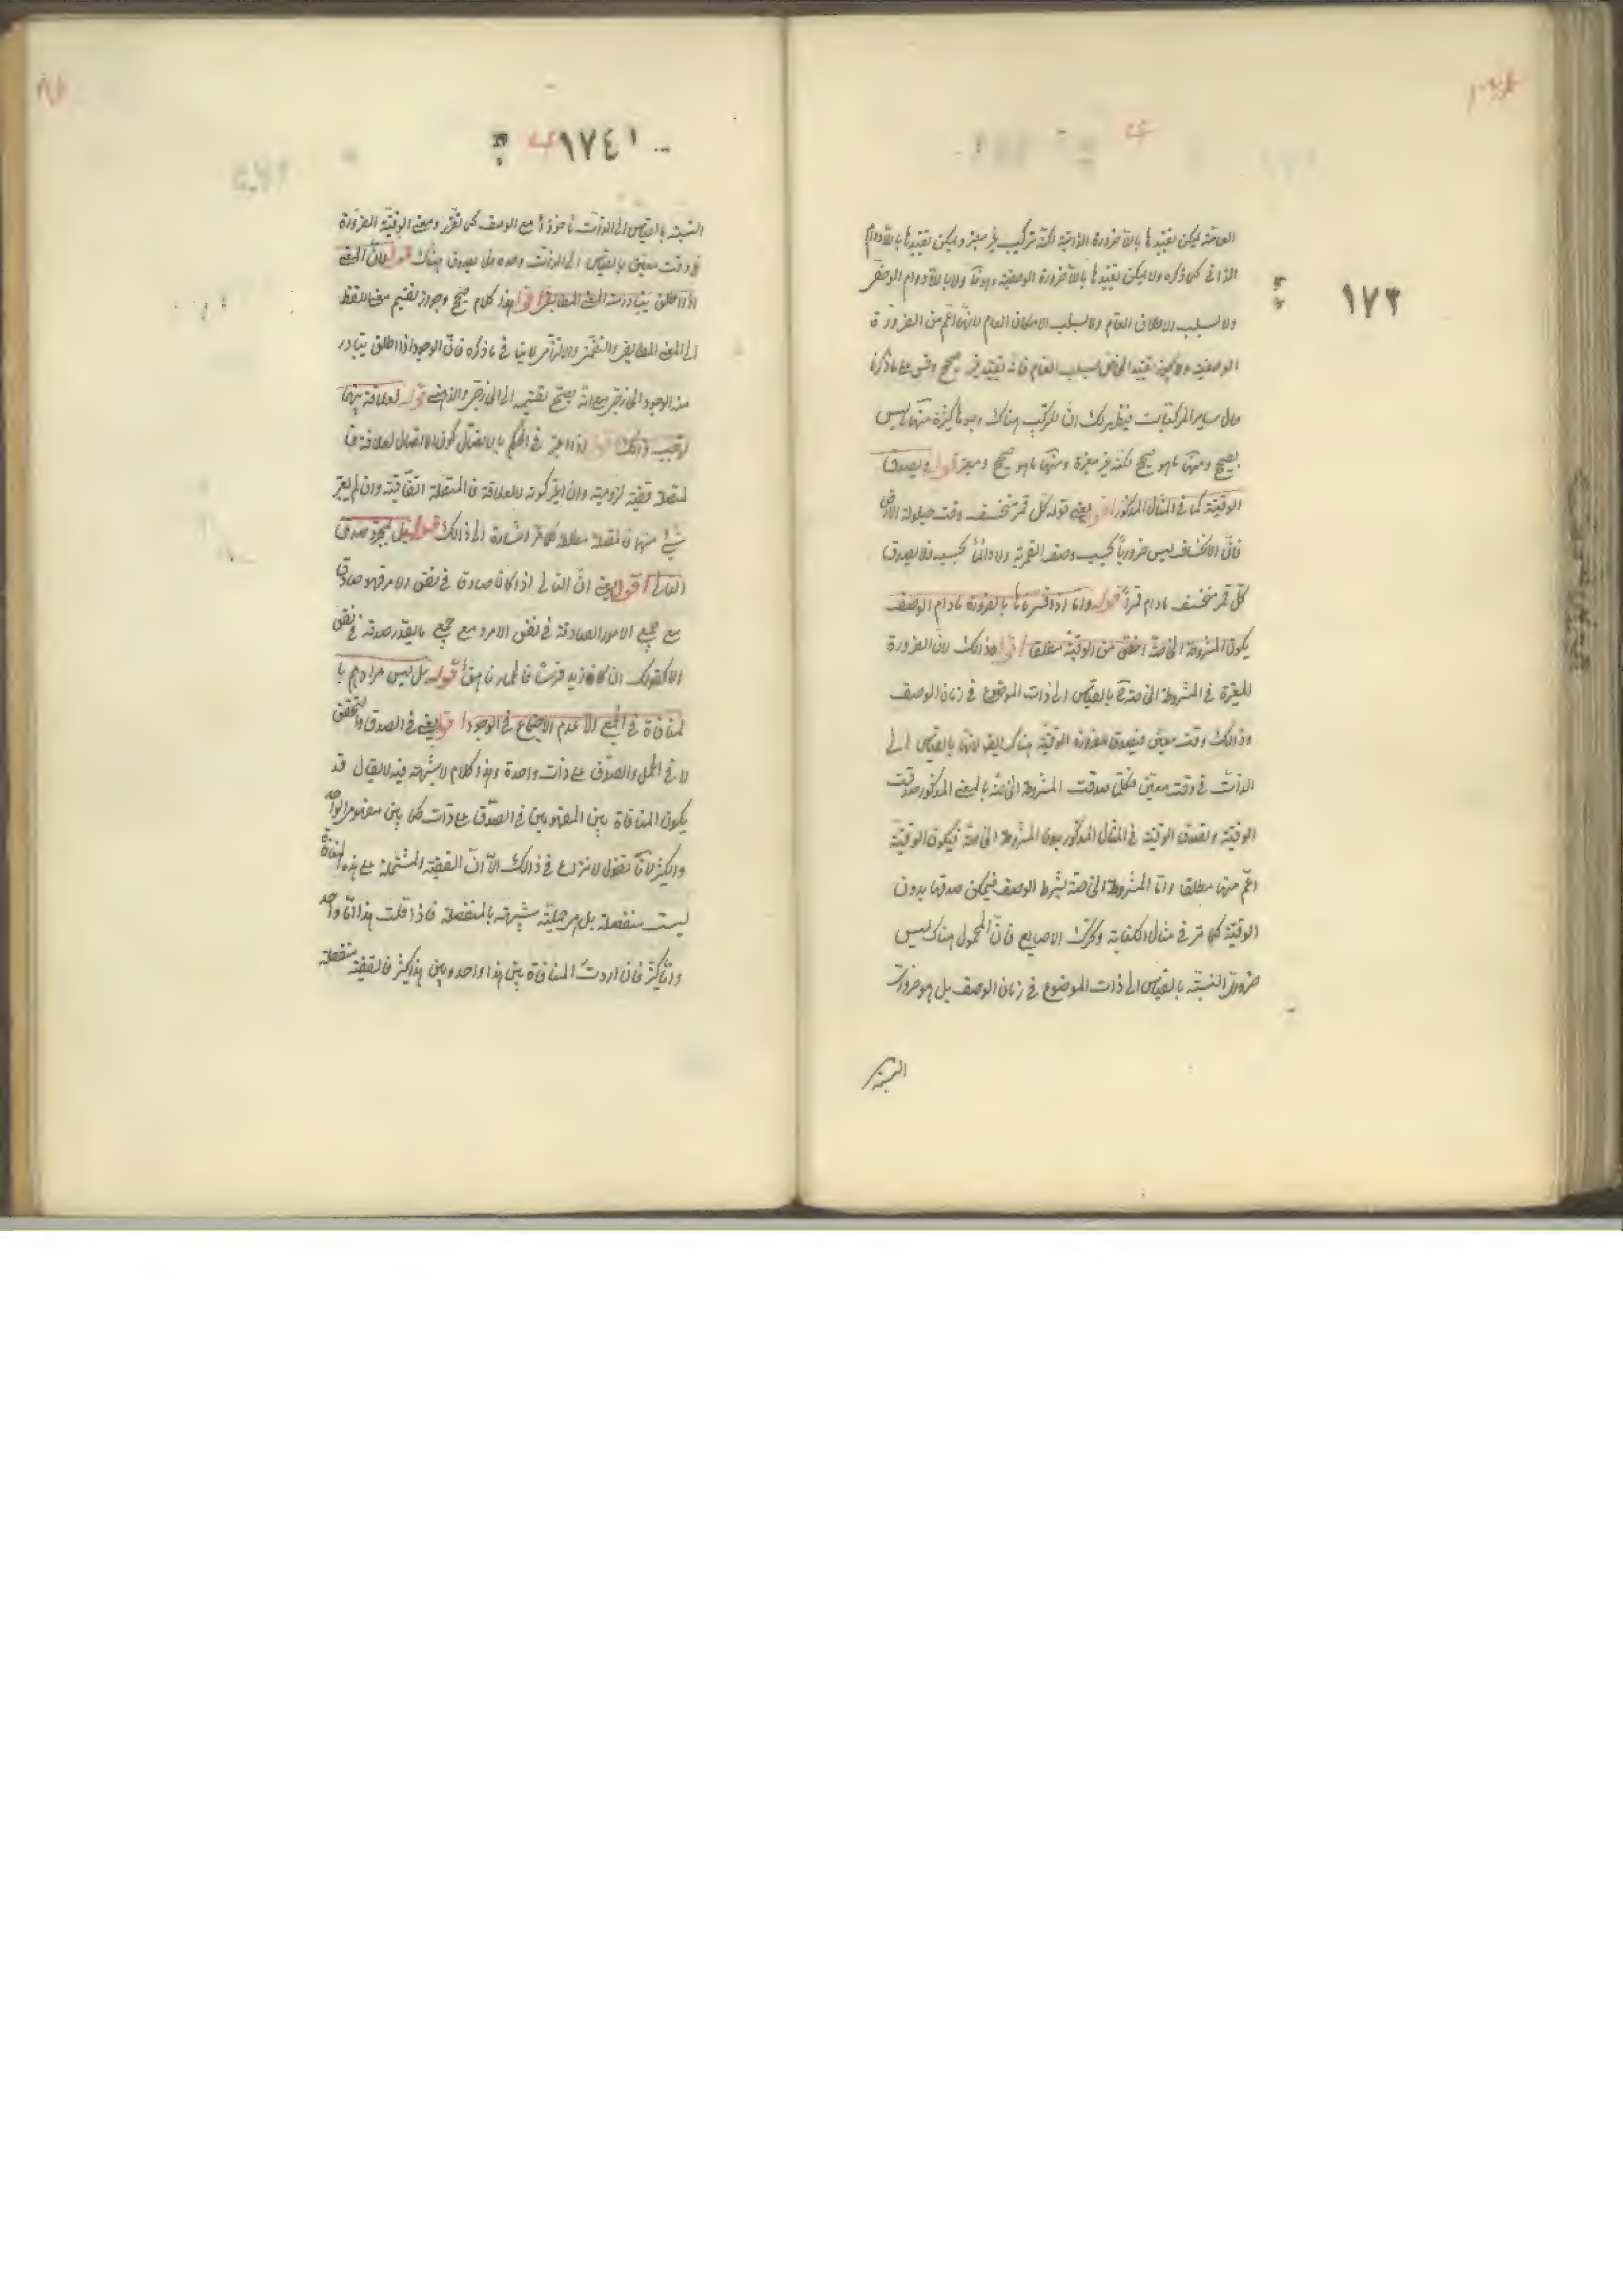 ١٧٣
العامة يمكن تقييدها باللاضرورة الذاتية لكنه تركيب غير معتبر ويمكن تقييدها باللادوام
الذاتي كما ذكره ولا يمكن تقييدها باللاضرورة الوصفية ولا باللادوام الوصفي
ولا بسلب الاطلاق العام ولا بسلب الامكان العام لانها اعم من الضرورة
الوصفية ولا يمكن تقييد الخاص بسلب العام فانه تقييد غير صحيح وقس على ما ذكرنا
حال ساير المركبات فيظهر لك ان للتركيب هناك وجوها كثيرة منها ما ليس
بصحيح ومنها ما هو صحيح لكنه غير معتبر ومنها ما هو صحيح ومعتبر قوله ويصدق
الوقتية كما في المثال المذكور اقول يعني قوله كل قمر منخسف وقت حيلولة الارض
فان الانخساف ليس ضروريا بحسب وصف القمرية ولا دائما بحسبه فلا يصدق
كل قمر منخسف مادام قمرا قوله واما اذا فسرناها بالضرورة مادام الوصف
يكون المشروطة الخاصة اخص من الوقتية مطلقا اقول وذلك لان الضرورة
المعتبرة في المشروطة الخاصة ح بالقياس الى ذات الموضوع في زمان الوصف
وذلك وقت معين فيصدق الضرورة الوقتية هناك ايضا لانها بالقياس الى
الذات في وقت معين فكلما صدقت المشروطة الخاصة بالمعنى المذكور صدقت
الوقتية وتصدق الوقتية في المثال المذكور بدون المشروطة الخاصة فيكون الوقتية
اعم منها مطلقا واما المشروطة الخاصة بشرط الوصف فيمكن صدقها بدون
الوقتية كما مر في مثال الكتابة وتحرك الاصابع فان المحمول هناك ليس
ضروري النسبة بالقياس الى ذات الموضوع في زمان الوصف بل هو ضروري
النسبة
١٧٤
النسبة بالقياس الى الذات ماخوذة مع الوصف كما تقرر ومعنى الوقتية الضرورة
في وقت معين بالقياس الى الذات وحده فلا يصدق هناك قوله لان المعنى
اذا اطلق يتبادر منه المعنى المطابقي اقول هذا كلام صحيح وجواز تقسيم معنى اللفظ
الى المعنى المطابقي والتضمني والالتزامي لا ينافي ما ذكره فان الوجود اذا اطلق يتبادر
منه الوجود الخارجي مع انه يصح تقسيمه الى الخارجي والذهني قوله لعلاقة بينهما
توجب ذلك اقول اذا اعتبر في الحكم بالاتصال كون الاتصال لعلاقة فا
لمتصلة قضية لزومية وان اعتبر كونه لا لعلاقة فالمتصلة اتفاقية وان لم يعتبر
شيئا منهما فالمتصلة مطلقة كما مر اشارة الى ذلك قوله بل بمجرد صدق
التالي اقول يعني ان التالي اذا كان صادقا في نفس الامر فهو صادق
مع جميع الامور الصادقة في نفس الامر ومع جميع ما يقدر صدقه في نفس
الامر كقولك ان كان زيد فرسا فالحمار ناهق قوله بل ليس مرادهم با
لمنافاة في الجمع الا عدم الاجتماع في الوجود اقول يعني في الصدق والتحقق
لا في الحمل والصدق على ذات واحدة وهذا كلام لا شبهة فيه لا يقال قد
يكون المنافاة بين المفهومين في الصدق على ذات كما بين مفهومي الواحد
والكثير لانا نقول لا نزاع في ذلك الا ان القضية المشتملة على هذه المنافاة
ليست منفصلة بل هي حملية شبيهة بالمنفصلة فاذا قلت هذا اما واحد
واما كثير فان اردت المنافاة بين هذا واحد وبين هذا كثير فالقضية منفصلة